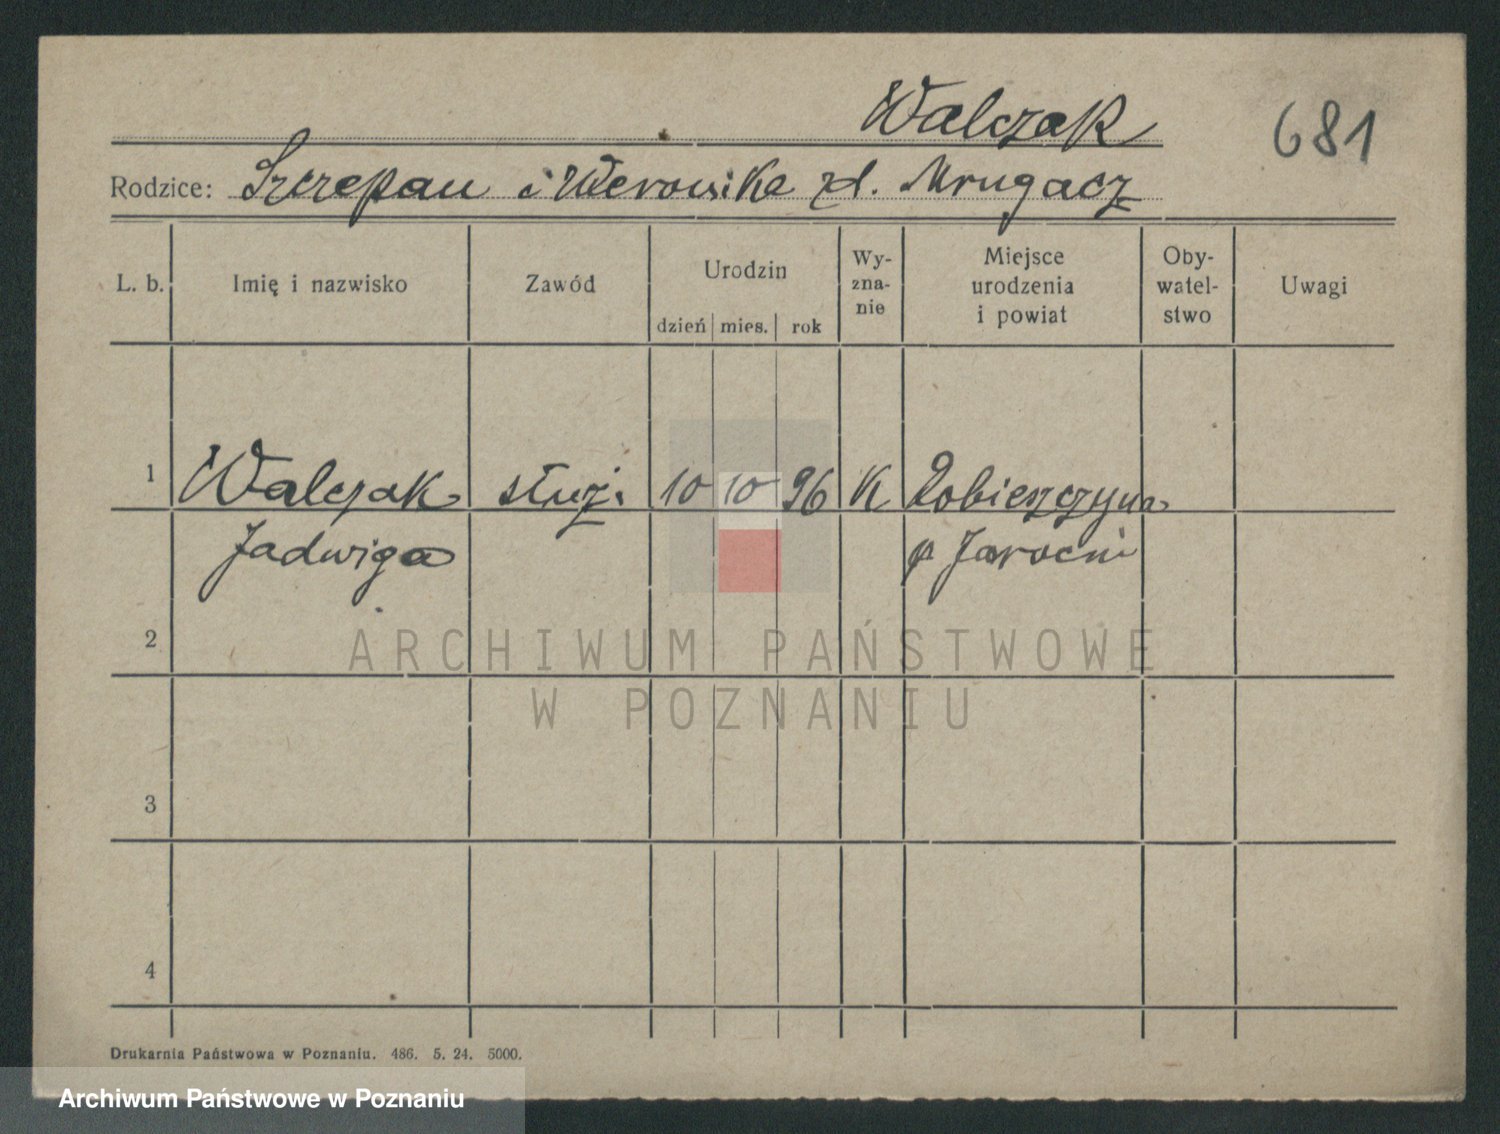 Walczak
681
Rodzice: Szczepan i Weronika zd. Mrugacz
L. b.
Imię i nazwisko
Zawód
Urodzin
dzień
mies.
rok
Wy-
zna-
nie
Miejsce
urodzenia
i powiat
Oby-
watel-
stwo
Uwagi
1 Walczak służ. 10 10 96 K
Jadwiga p Jarocin
2
3
4
ARCHIWUM PAŃSTWOWE
W POZNANIU
Drukarnia Państwowa w Poznaniu. 486. 5. 24. 5000.
Archiwum Państwowe w Poznaniu